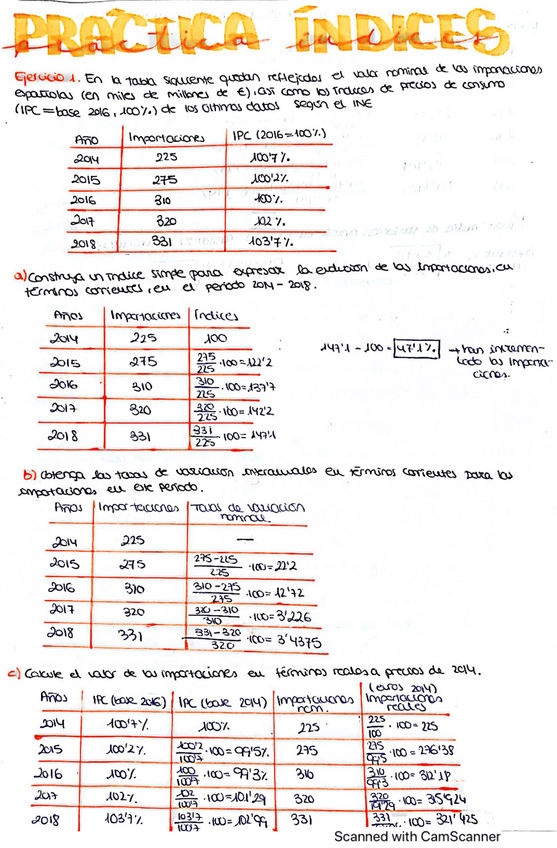 PRÁCTICA ÍNDICES
práctica índices
Ejercicio 1. En la tabla siguiente quedan reflejados el valor nominal de las importaciones
españolas (en miles de millones de €), así como los índices de precios de consumo
(IPC = base 2016, 100%) de los últimos datos según el INE
Año Importaciones IPC (2016=100%)
2014 225 100'7%
2015 275 100'2%
2016 310 100%
2017 320 102%
2018 331 103'7%
a) Construya un índice simple para expresar la evolución de las importaciones, en
términos corrientes, en el periodo 2014 - 2018.
Años Importaciones Índices
2014 225 100
2015 275 275/225 · 100 = 122'2
2016 310 310/225 · 100 = 137'7
2017 320 320/225 · 100 = 142'2
2018 331 331/225 · 100 = 147'1
147'1 - 100 = 47'1% → han incremen-
tado las importa-
ciones.
b) Obtenga las tasas de variación interanuales en términos corrientes para las
importaciones en este periodo.
Años Importaciones Tasas de variación
nominal
2014 225 —
2015 275 275-225/225 · 100 = 22'2
2016 310 310-275/275 · 100 = 12'72
2017 320 320-310/310 · 100 = 3'226
2018 331 331-320/320 · 100 = 3'4375
c) Calcule el valor de las importaciones en términos reales a precios de 2014.
Años IPC (base 2016) IPC (base 2014) Importaciones nom. (euros 2014) Importaciones reales
2014 100'7% 100% 225 225/100 · 100 = 225
2015 100'2% 100'2/100'7 · 100 = 99'5% 275 275/99'5 · 100 = 276'38
2016 100% 100/100'7 · 100 = 99'3% 310 310/99'3 · 100 = 312'18
2017 102% 102/100'7 · 100 = 101'29 320 320 · 100 =
2018 103'7% 103'7/100'7 · 100 = 102'99 331 331 · 100 = 321'425
Scanned with CamScanner